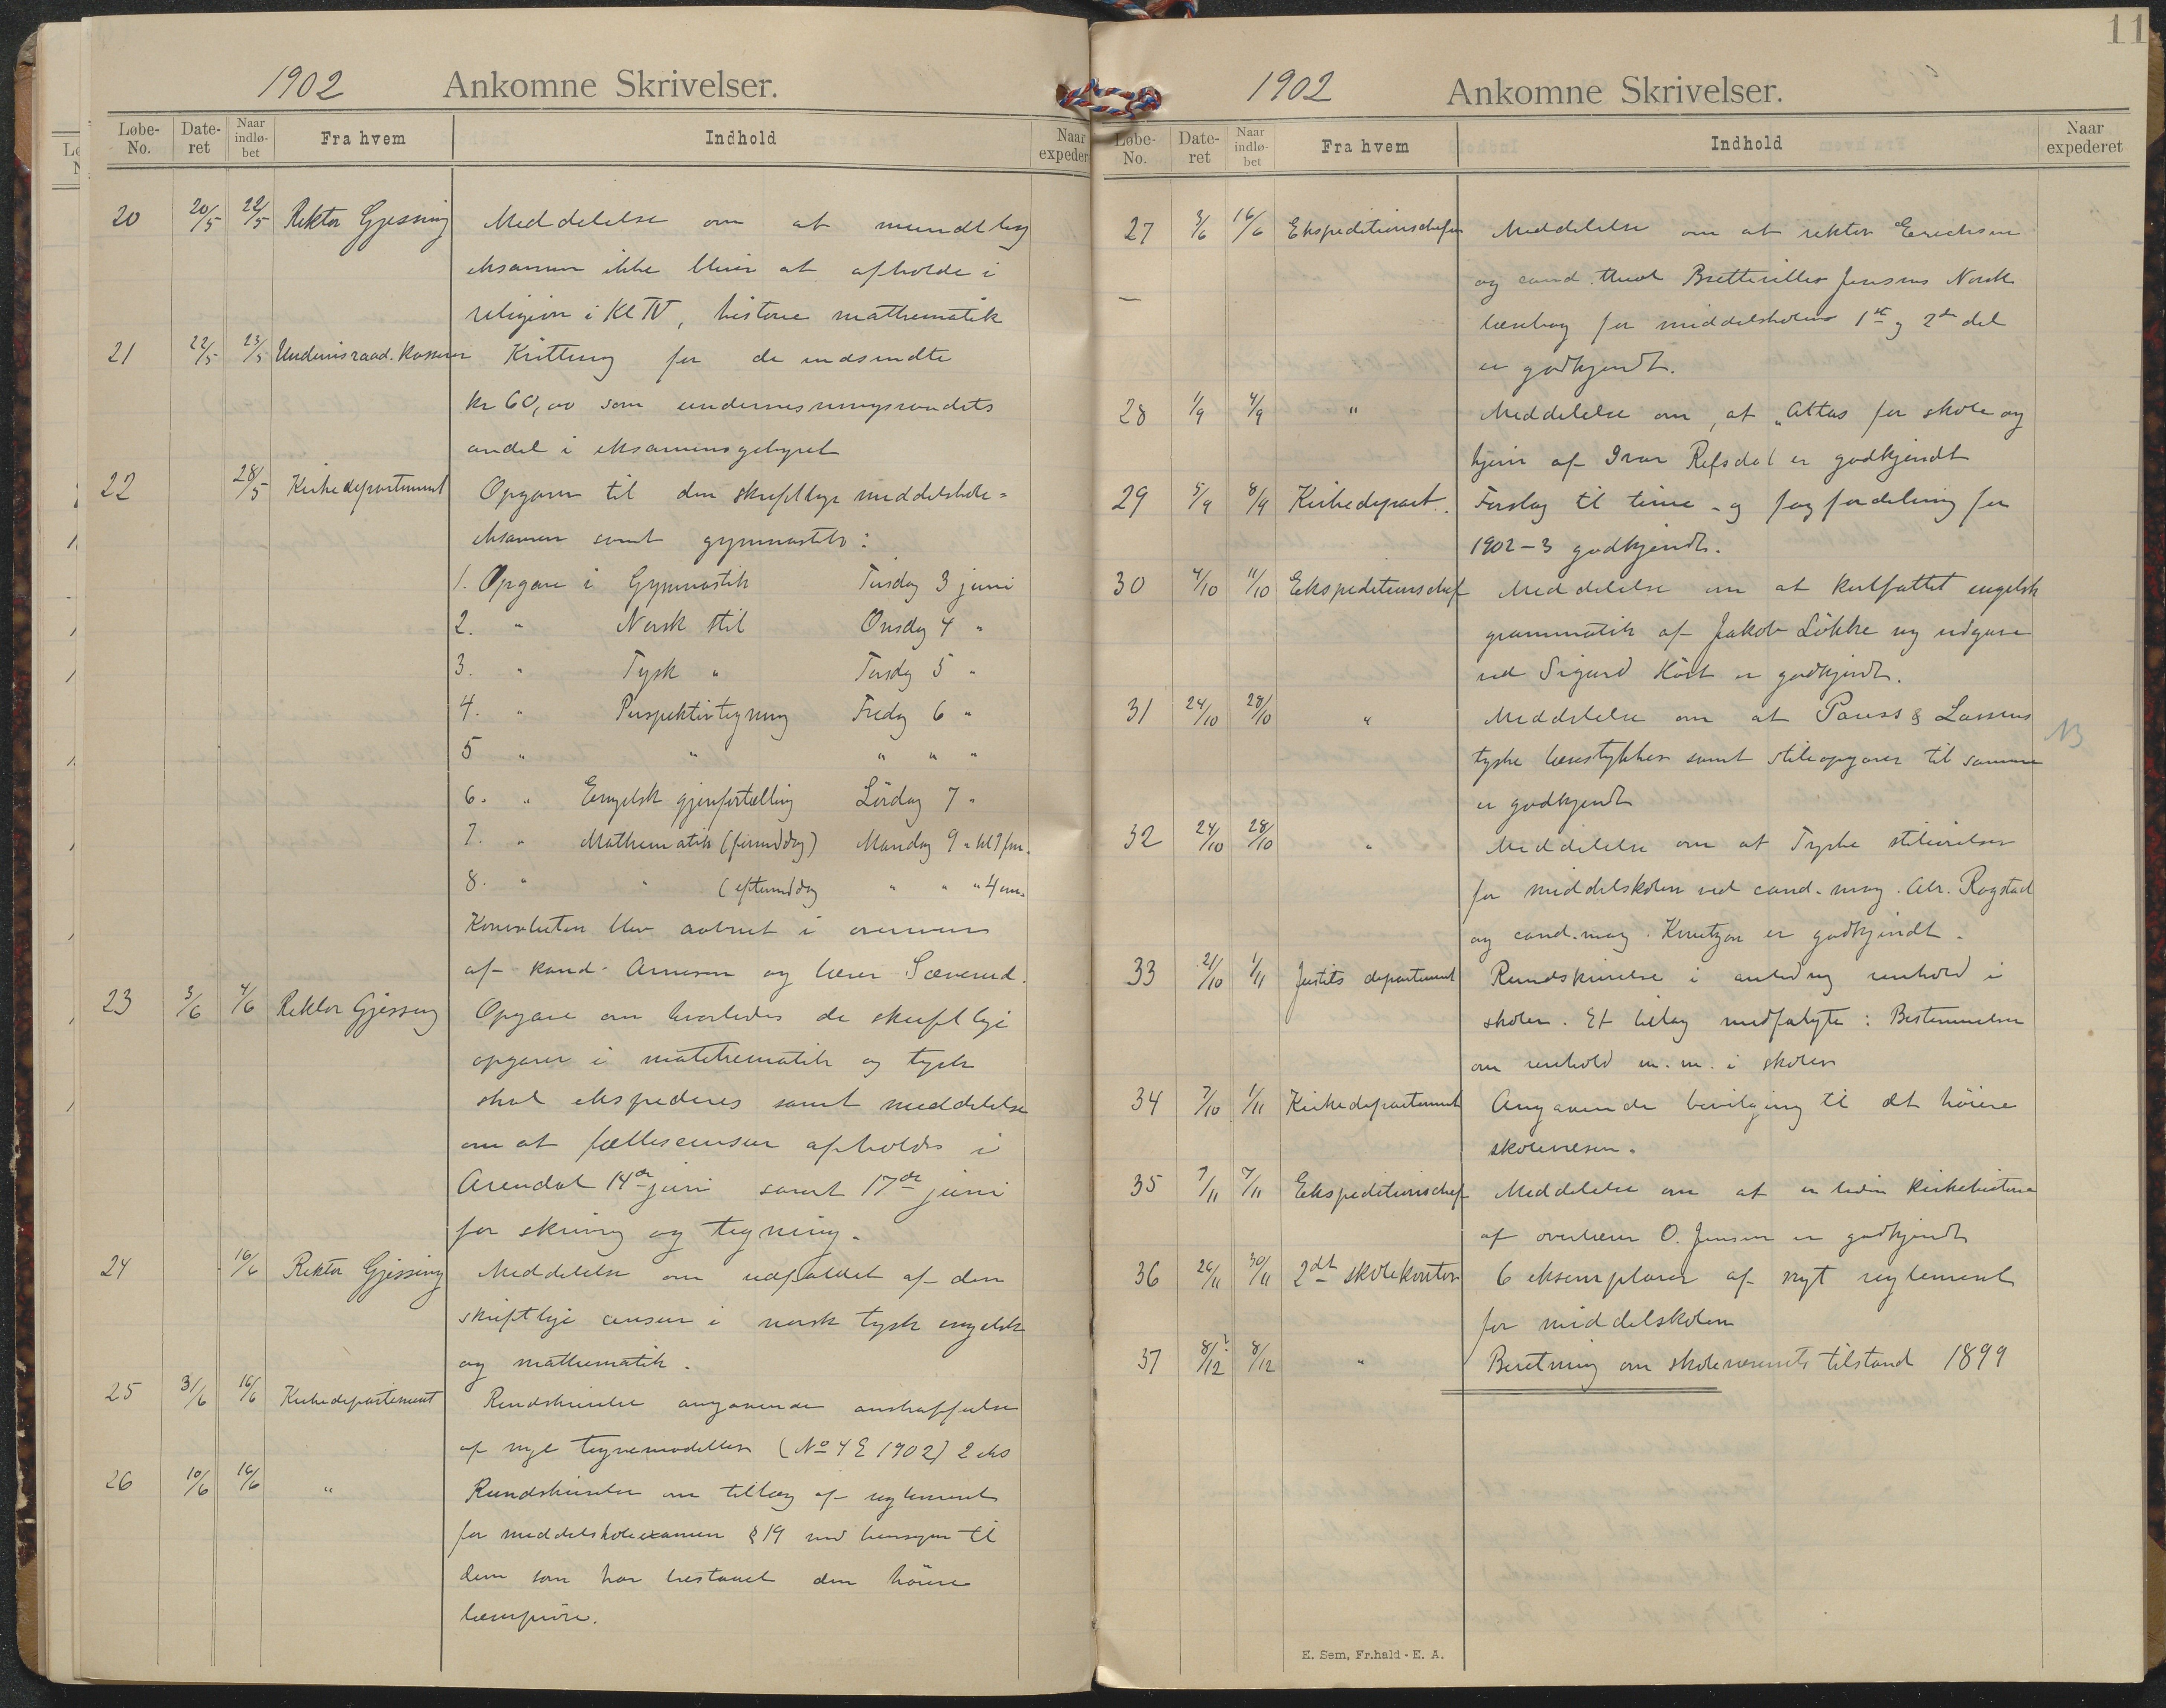 1902 Ankomne Skrivelser.
Løbe-No. Dateret Naar indløbet Fra hvem Indhold Naar expeder
20 20/5 22/5 Rektor Gjessing Meddelelse om at mundtlig
eksamen ikke bliver at afholde i
religion i Kl IV, historie mathematik
21 22/5 23/5 Undervisraad. Kasserer Kvittering for de indsendte
kr 60,00 som undervisningsraadets
andel i eksamensgebyret
22 28/5 Kirkedepartement Opgaver til den skriftlige middelskole=
eksamen samt gymnastik:
1. Opgave i Gymnastik Tirsdag 3 juni
2. " Norsk stil Onsdag 4 "
3. " Tysk " Torsdag 5 "
4. " Perspektivtegning Fredag 6 "
5 " " " " "
6. " Engelsk gjenfortælling Lördag 7 "
7. " Mathematik (formiddag) Mandag 9 " kl 9 fm.
8. " " (eftermiddag " " " 4 em.
Konvolutten blev aabnet i overvær
af kand. Arnesen og lærer Sæverud.
23 3/6 4/6 Rektor Gjessing Opgave om hvorledes de skriftlige
opgaver i mathematik og tysk
skal ekspederes samt meddelelse
om at fællescensur afholdes i
Arendal 14de juni samt 17de juni
for skrivning og tegning.
24 16/6 Rektor Gjessing Meddelelse om udfaldet af den
skriftlige censur i norsk tysk engelsk
og mathematik.
25 31/6 16/6 Kirkedepartement Rundskrivelse angaaende anskaffelse
af nye tegnemodeller (No 4 E 1902) 2 eks
26 10/6 16/6 " Rundskrivelse om tillæg af reglement
for middelskoleexamen § 19 med hensyn til
dem som har bestaaet den höiere
lærerpröve.
11
1902 Ankomne Skrivelser.
Løbe-No. Dateret Naar indløbet Fra hvem Indhold Naar expederet
27 3/6 16/6 Ekspeditionschefen Meddelelse om at rektor Erichsen
og cand. theol Bretteville Jensens Norsk
læsebog for middelskolens 1ste og 2den del
er godkjendt.
28 1/9 4/9 " Meddelelse om, at "Atlas for skole og
hjem af Ivar Refsdal er godkjendt
29 5/9 8/9 Kirkedepart. Forslag til time- og fagfordeling for
1902-3 godkjendt.
30 4/10 11/10 Ekspeditionschef Meddelelse om at kortfattet engelsk
grammatik af Jakob Lökke ny udgave
ved Sigurd Höst er godkjendt.
31 24/10 28/10 " Meddelelse om at Pauss & Lassens
tyske læsestykker samt stileopgaver til samme
er godkjendt
32 24/10 28/10 " Meddelelse om at Tyske stiløvelser
for middelskolen ved cand. mag. Alr. Rogstad
og cand. mag. Knutzon er godkjendt.
33 21/10 1/11 Justits departement Rundskrivelse i anledning renhold i
skolen. Et bilag medfulgte: Bestemmelser
om renhold m. m. i skolen
34 7/10 1/11 Kirkedepartement Angaaende bevilgning til det höiere
skolevæsen.
35 7/11 7/11 Ekspeditionschef Meddelelse om at en liden Kirkehistorie
af overlærer O. Jensen er godkjendt
36 26/11 30/11 2det skolekontor 6 eksemplarer af nyt reglement
for middelskolen
37 8/12? 8/12 " Beretning om skolevæsenets tilstand 1899
E. Sem, Fr.hald - E. A.